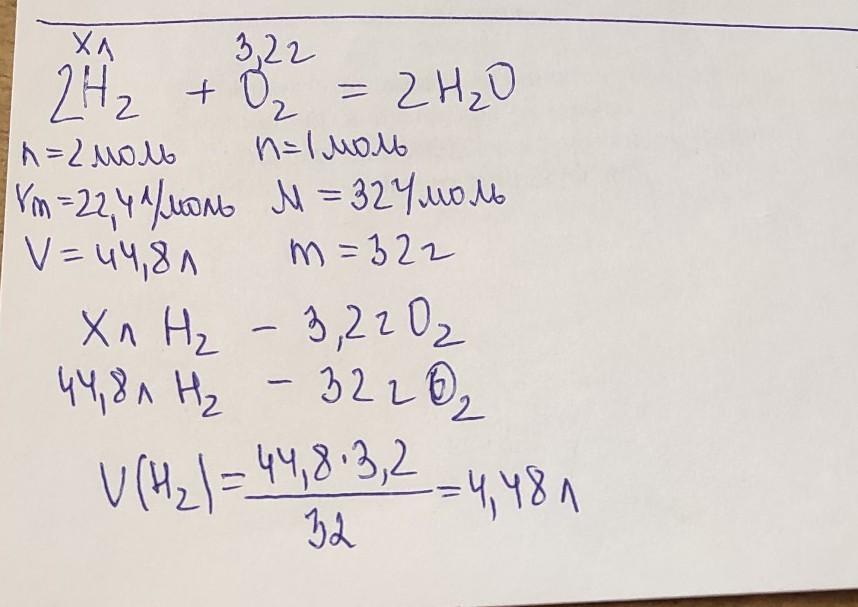 хл 3,2г
2H₂ + O₂ = 2H₂O
n=2моль n=1моль
Vm=22,4л/моль M=32г/моль
V=44,8л m=32г
Xл H₂ – 3,2г O₂
44,8л H₂ – 32г O₂
V(H₂)=44,8·3,2/32=4,48л